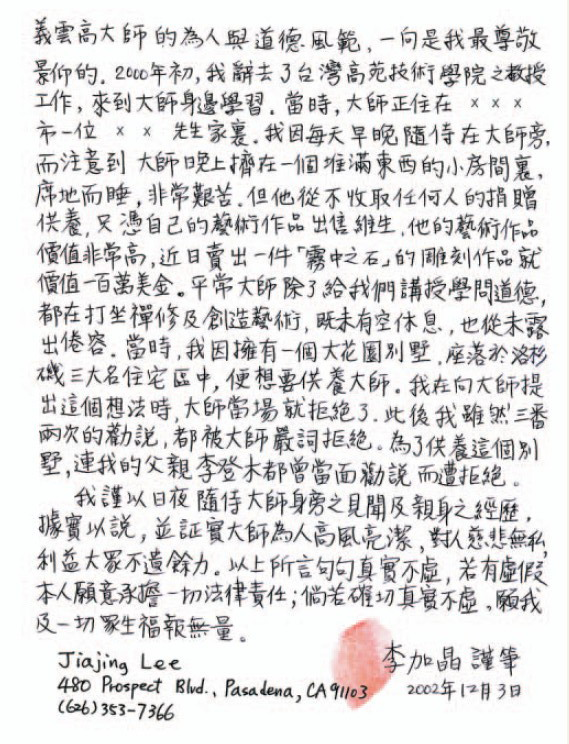 義雲高大師的為人與道德風範,一向是我最尊敬
景仰的。2000年初,我辭去了台灣高苑技術學院之教授
工作,來到大師身邊學習。當時,大師正住在 × × ×
市一位 × × 先生家裏。我因每天早晚隨侍在大師旁,
而注意到大師晚上擠在一個堆滿東西的小房間裏,
席地而睡,非常艱苦。但他從不收取任何人的捐贈
供養,只憑自己的藝術作品出售維生,他的藝術作品
價值非常高,近日賣出一件「霧中之石」的雕刻作品就
價值一百萬美金。平常大師除了給我們講授學問道德,
都在打坐禪修及創造藝術,既未有空休息,也從未露
出倦容。當時,我因擁有一個大花園別墅,座落於洛杉
磯三大名住宅區中,便想要供養大師。我在向大師提
出這個想法時,大師當場就拒絕了。此後我雖然三番
兩次的勸說,都被大師嚴詞拒絕。為了供養這個別
墅,連我的父親李登木都曾當面勸說而遭拒絕。
我謹以日夜隨侍大師身旁之見聞及親身之經歷,
據實以說,並証實大師為人高風亮潔,對人慈悲無私,
利益大眾不遺餘力。以上所言句句真實不虛,若有虛假
本人願意承擔一切法律責任;倘若確切真實不虛。願我
及一切眾生福報無量。
Jiajing Lee
李加晶 謹筆
480 Prospect Blvd., Pasadena, CA 91103
2002年12月3日
(626)353-7366